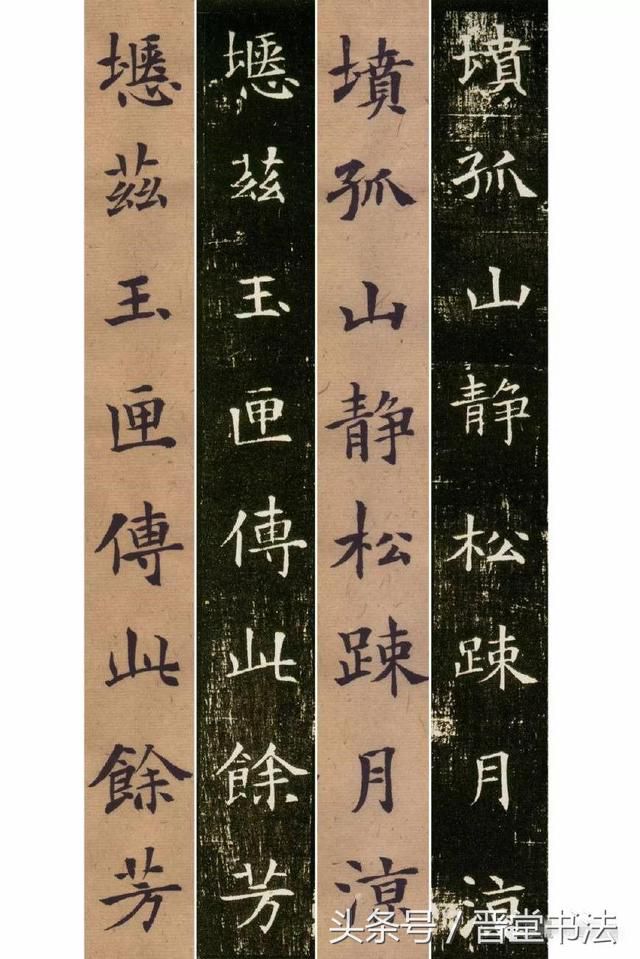 墳孤山静松踈月涼
墳孤山静松踈月涼
兹玉匣傳此餘芳
兹玉匣傳此餘芳
头条号/晋堂书法